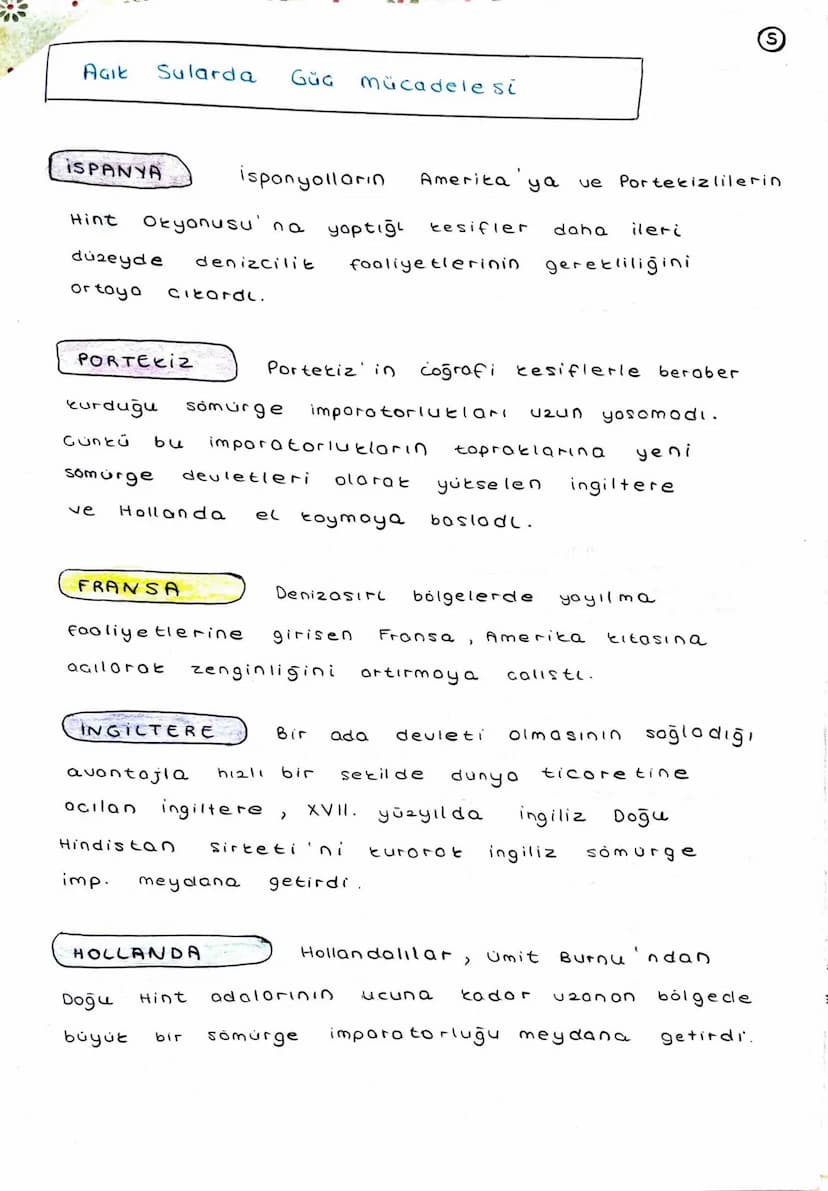 5
Açık Sularda Güç mücadelesi
İSPANYA İspanyolların Amerika'ya ve Portekizlilerin
Hint Okyanusu'na yaptığı keşifler daha ileri
düzeyde denizcilik faaliyetlerinin gerekliliğini
ortaya çıkardı.
PORTEKİZ Portekiz'in coğrafi keşiflerle beraber
kurduğu sömürge imparatorlukları uzun yaşamadı.
Çünkü bu imparatorlukların topraklarına yeni
sömürge devletleri olarak yükselen ingiltere
ve Hollanda el koymaya başladı.
FRANSA Denizaşırı bölgelerde yayılma
faaliyetlerine girişen Fransa, Amerika kıtasına
açılarak zenginliğini artırmaya çalıştı.
İNGİLTERE Bir ada devleti olmasının sağladığı
avantajla hızlı bir şekilde dünya ticaretine
açılan ingiltere, XVII. yüzyılda ingiliz Doğu
Hindistan Şirketi'ni kurarak ingiliz sömürge
imp. meydana getirdi.
HOLLANDA Hollandalılar, Ümit Burnu'ndan
Doğu Hint adalarının ucuna kadar uzanan bölgede
büyük bir sömürge imparatorluğu meydana getirdi.